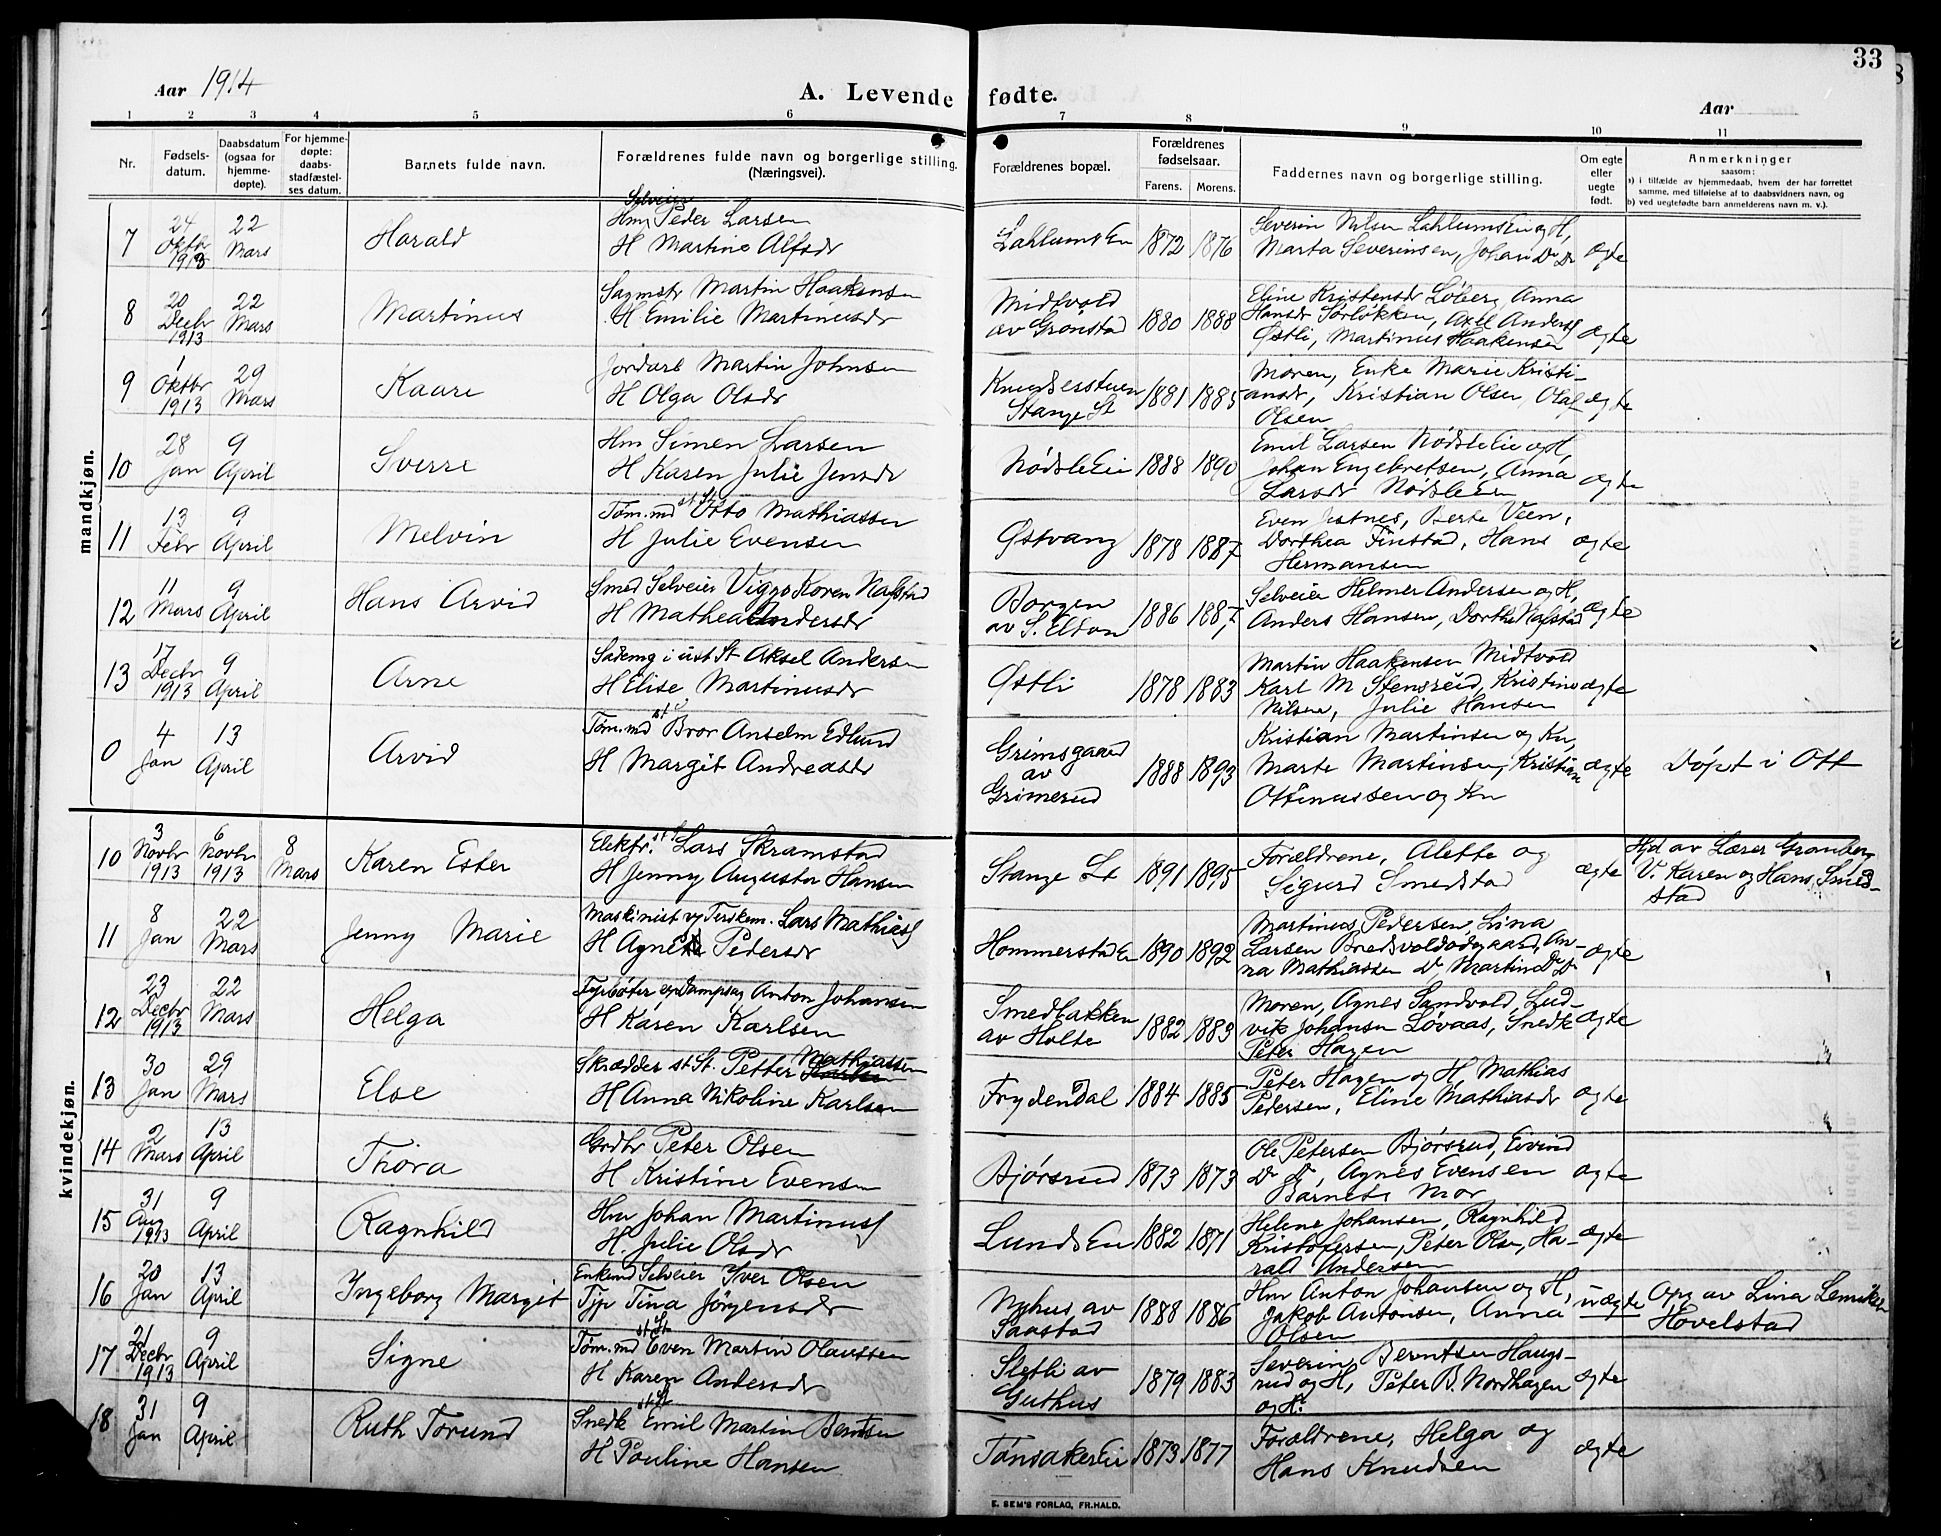 33
Aar 1914
A. Levende fødte.
Aar
1 2 3 4 5 6 7 8 9 10 11
Nr. Fødsels-datum. Daabsdatum (ogsaa for hjemme-døpte). For hjemme-døpte: daabs-stadfæstel-ses datum. Barnets fulde navn. Forældrenes fulde navn og borgerlige stilling. (Næringsvei). Forældrenes bopæl. Forældrenes fødselsaar. Farens. Morens. Faddernes navn og borgerlige stilling. Om egte eller uegte født. Anmerkninger saasom: a) i tilfælde av hjemmedaab, hvem der har forrettet samme, med tilføielse af to daabsvidners navn, og b) ved uegtefødte barn anmelderens navn m. v.).
mandkjøn.
7 24 Oktbr 1913 22 Mars Harald Selveier Hm Peder Larsen
H Martine Alfsdr Lahlums Eie 1872 1876 Severin Nilsen Lahlums Eie og H,
Marta Severinsen, Johan Do Do ægte
8 20 Decbr 1913 22 Mars Martinus Sagmstr Martin Haakensen
H Emilie Martinusdr Midtvold av Grønstad 1880 1888 Eline Kristensdr Løberg Anna
Hansdr Sørløkken, Axel Anders
Østli, Martinus Haakensen ægte
9 1 Oktbr 1913 29 Mars Kaare Jordarb Martin Johnsen
H Olga Olsdr Knudsstuen Stange St 1881 1885 Moren, Enke Marie Kristi-
ansdr, Kristian Olsen, Olaf
Olsen ægte
10 28 Jan 9 April Sverre Hm Simen Larsen
H Karen Julie Jensdr Nødsle Eie 1888 1890 Emil Larsen Nødsle Eie og H,
Johan Engebretsen, Anna
Larsdr Nødsle Eie ægte
11 13 Febr 9 April Melvin Tøm.md st St Otto Mathiassen
H Julie Evensen Østvang 1878 1887 Even Jestnes, Berte Veen,
Dorthea Finstad, Hans
Hermansen ægte
12 11 Mars 9 April Hans Arvid Smed Selveier Viggo Koren Nafstad
H Mathea Andersdr Borgen av S. Elton 1886 1887 Selveier Helmer Andersen og H,
Anders Hansen, Dorthe Nafstad ægte
13 17 Decbr 1913 9 April Arne Aksel Andersen
H Elise Martinusdr Østli 1878 1883 Martin Haakensen Midtvold
Karl M Stensrud, Kristine
Nilsen, Julie Hansen ægte
0 4 Jan 13 April Arvid Tøm.md st Bror Anselm Edlund
H Margit Andreasdr Grimsgaard av Grimerud 1888 1893 Kristian Martinsen og Kn,
Marte Martinsen, Kristian
Ottinussen og Kn ægte Døpt i Ott
kvindekjøn.
10 3 Novbr 1913 6 Novbr 1913 8 Mars Karen Ester Elektr. st St Lars Skramstad
H Jenny Augusta Hansen Stange St 1891 1895 Forældrene, Alette og
Sigurd Smedstad ægte Hjd av Lærer Granberg
V. Karen og Hans Smed-
stad
11 8 Jan 22 Mars Jenny Marie Maskinist vg Terskem. Lars Mathias
H Agnete Pedersdr Hommerstad Eie 1890 1892 Martinus Pedersen, Lina
Larsen Bredsvoldodgaard, An-
na Mathiassen Do Martin Do Do ægte
12 23 Decbr 1913 22 Mars Helga Fyrbøter vg Dampsag Anton Johansen
H Karen Karlsen Smedbakken av Holte 1882 1883 Moren, Agnes Sandvold, Lud-
vik Johansen Løvaas, Snedk
Peter Hagen ægte
13 30 Jan 29 Mars Else Skrædder st St. Petter Mathiassen
H Anna Nikoline Karlsen Frydendal 1884 1885 Peter Hagen og H Mathias
Pedersen, Eline Mathiasdr ægte
14 2 Mars 13 April Thora Grdbr Peter Olsen
H Kristine Evensen Bjørsrud 1873 1873 Ole Petersen Bjørsrud, Eivind
Do Do, Agnes Evensen
Barnets Mor ægte
15 31 Aug 1913 9 April Ragnhild Hm Johan Martinus
H. Julie Olsdr Lunds Eie 1882 1871 Helene Johansen, Ragnhild
Kristofersen, Peter Olsen, Ha-
rald Andersen ægte
16 20 Jan 13 April Ingeborg Margit Enkmd Selveier Iver Olsen
Tjp Tina Jørgensdr Nyhus av Saastad 1888 1886 Hm Anton Johansen og H,
Jakob Antonsen, Anna
Olsen uægte Opg av Lina
Hovelstad
17 21 Decbr 1913 9 April Signe Tøm.md st St Even Martin Olaussen
H Karen Andersdr Sletli av Guthus 1879 1883 Severin Berntsen Haugs-
rud og H, Peter B. Nordhagen
og H. ægte
18 31 Jan 9 April Ruth Torund Snedk st St Emil Martin Berntsen
H Pauline Hansen Tønsaker Eie 1873 1877 Forældrene, Helga og
Hans Knudsen ægte
E. SEM'S FORLAG, FR.HALD.